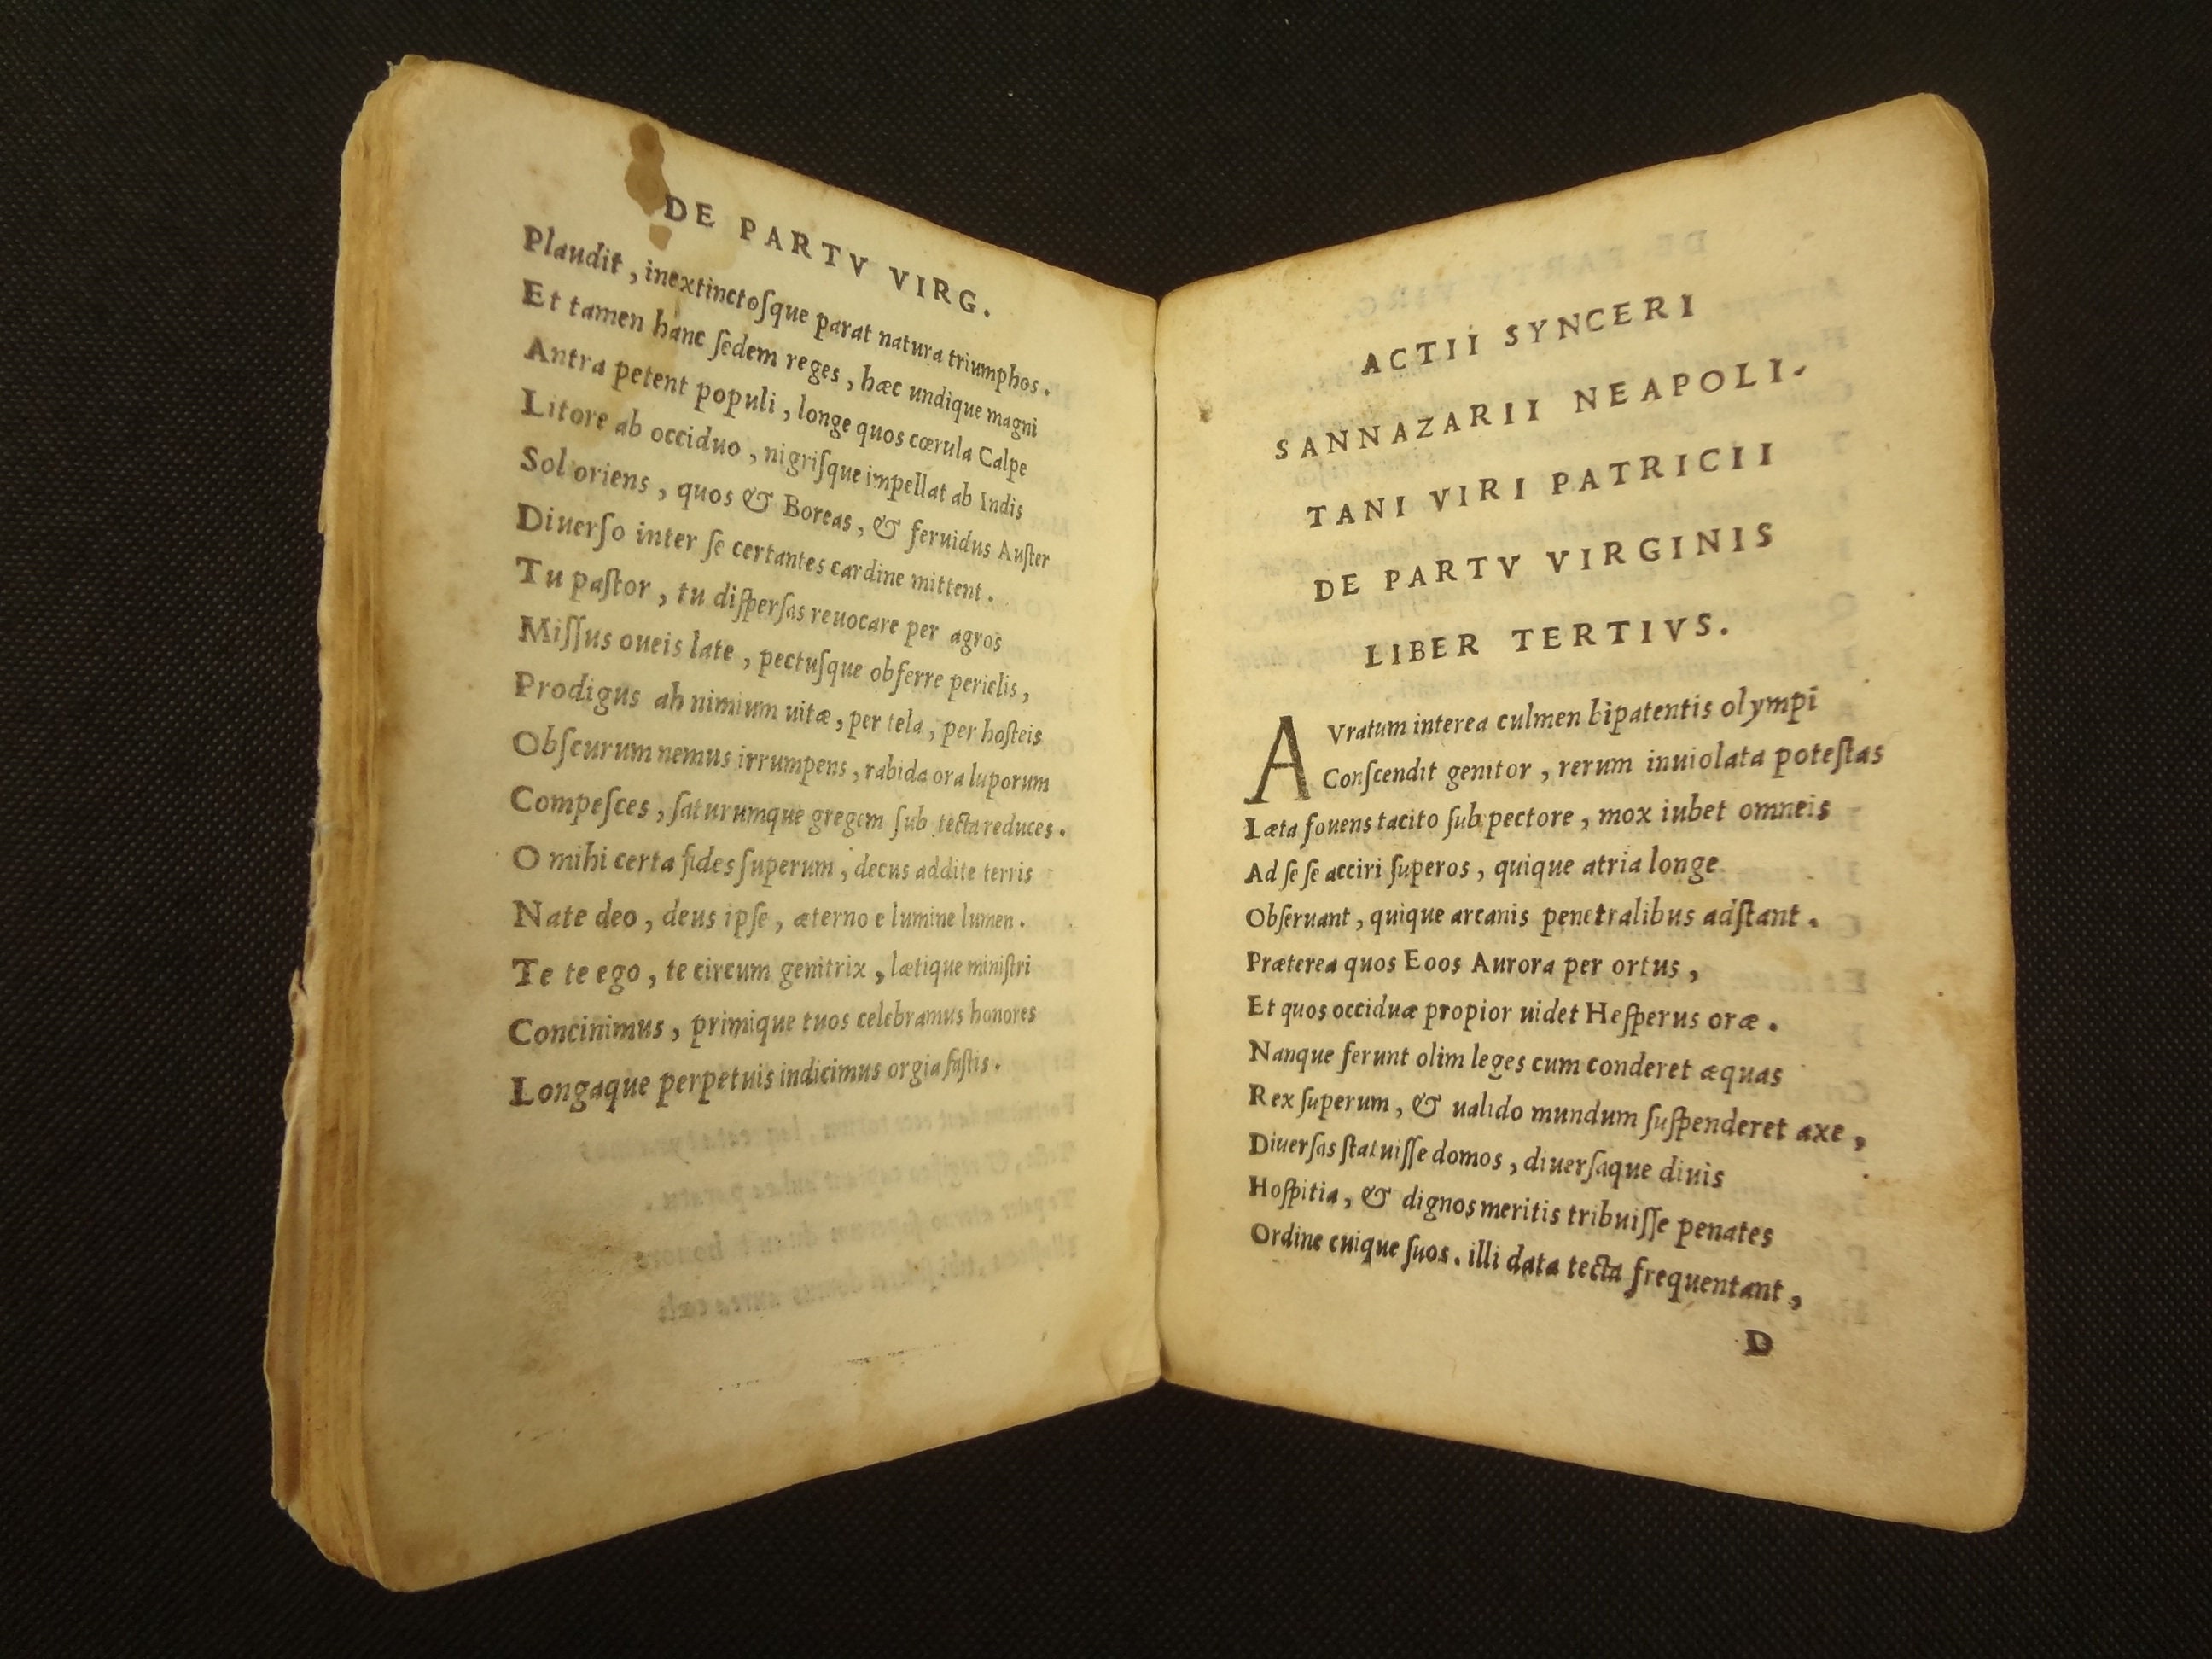 DE PARTV VIRG.
Plaudit, inextinctoſque parat natura triumphos.
Et tamen hanc ſedem reges, hæc undique magni
Antra petent populi, longe quos cœrula Calpe
Litore ab occiduo, nigriſque impellat ab Indis
Sol oriens, quos & Boreas, & feruidus Auſter
Diuerſo inter ſe certantes cardine mittent.
Tu paſtor, tu diſperſas reuocare per agros
Miſſus oueis late, pectuſque obferre periclis,
Prodigus ah nimium uitæ, per tela, per hoſteis
Obſcurum nemus irrumpens, rabida ora luporum
Compeſces, ſaturumque gregem ſub tecta reduces.
O mihi certa fides ſuperum, decus addite terris
Nate deo, deus ipſe, æterno e lumine lumen.
Te te ego, te circum genitrix, lætique miniſtri
Concinimus, primique tuos celebramus honores
Longaque perpetuis indicimus orgia faſtis.
ACTII SYNCERI
SANNAZARII NEAPOLI-
TANI VIRI PATRICII
DE PARTV VIRGINIS
LIBER TERTIVS.
AVratum interea culmen bipatentis olympi
Conſcendit genitor, rerum inuiolata poteſtas
Læta fouens tacito ſub pectore, mox iubet omneis
Ad ſe ſe acciri ſuperos, quique atria longe
Obſeruant, quique arcanis penetralibus adſtant.
Præterea quos Eoos Aurora per ortus,
Et quos occiduæ propior uidet Heſperus oræ.
Nanque ferunt olim leges cum conderet æquas
Rex ſuperum, & ualido mundum ſuſpenderet axe,
Diuerſas ſtatuiſſe domos, diuerſaque diuis
Hoſpitia, & dignos meritis tribuiſſe penates
Ordine cuique ſuos. illi data tecta frequentant,
D